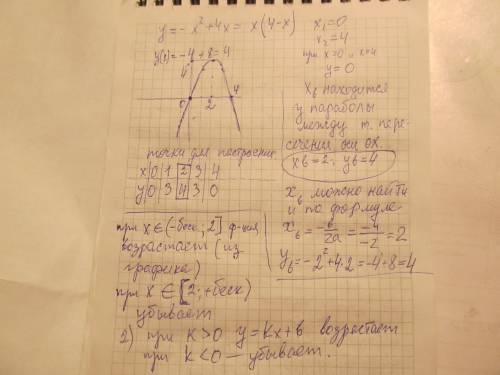 y = - x² + 4x = x(4-x) x₁=0
x₂=4
y(2) = -4 + 8 = 4
при x=0 и x=4
y=0
4
0 2 4
xв находится
у параболы
между т. пере-
сечения оси ox.
xв=2; yв=4
точки для построения
x 0 1 2 3 4
y 0 3 4 3 0
xв можно найти
и по формуле
xв = -b/2a = -4/-2 = 2
yв = -2² + 4·2 = -4+8=4
при x ∈ (-беск; 2] ф-ция
возрастает (из
графика)
при x ∈ [2; +беск)
убывает
2) при k>0 y=kx+b возрастает
при k<0 — убывает.